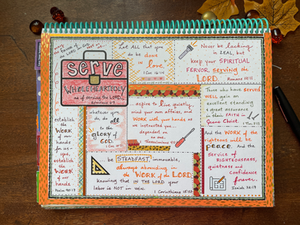 serve
WHOLEHEARTEDLY
as if serving the LORD,
Let all that you
do be done
in love.
Never be lacking
in ZEAL, but
keep your SPIRITUAL
FERVOR, serving the
LORD. Romans 12:11
Those who have SERVED
well gain an
excellent standing &
great assurance
in their FAITH in
Jesus Christ.
whatever
you do,
do all
to the
glory of
GOD.
aspire to live quietly,
mind your own affairs, and
WORK with your hands as
we instructed you...
dependent on
no one.
1 Thessalonians
establish
the
WORK
of our
hands
for us -
yes,
establish
the
WORK
of our
hands.
Psalm 90:17
And the WORK of the
righteousness will be
peace. And the
service of
RIGHTEOUSNESS,
quietness and
confidence
forever.
Isaiah 32:17
be STEADFAST, immovable,
always abounding in
the WORK of the LORD,
knowing that in THE LORD your
labor is NOT in vain. 1 Corinthians 15:58